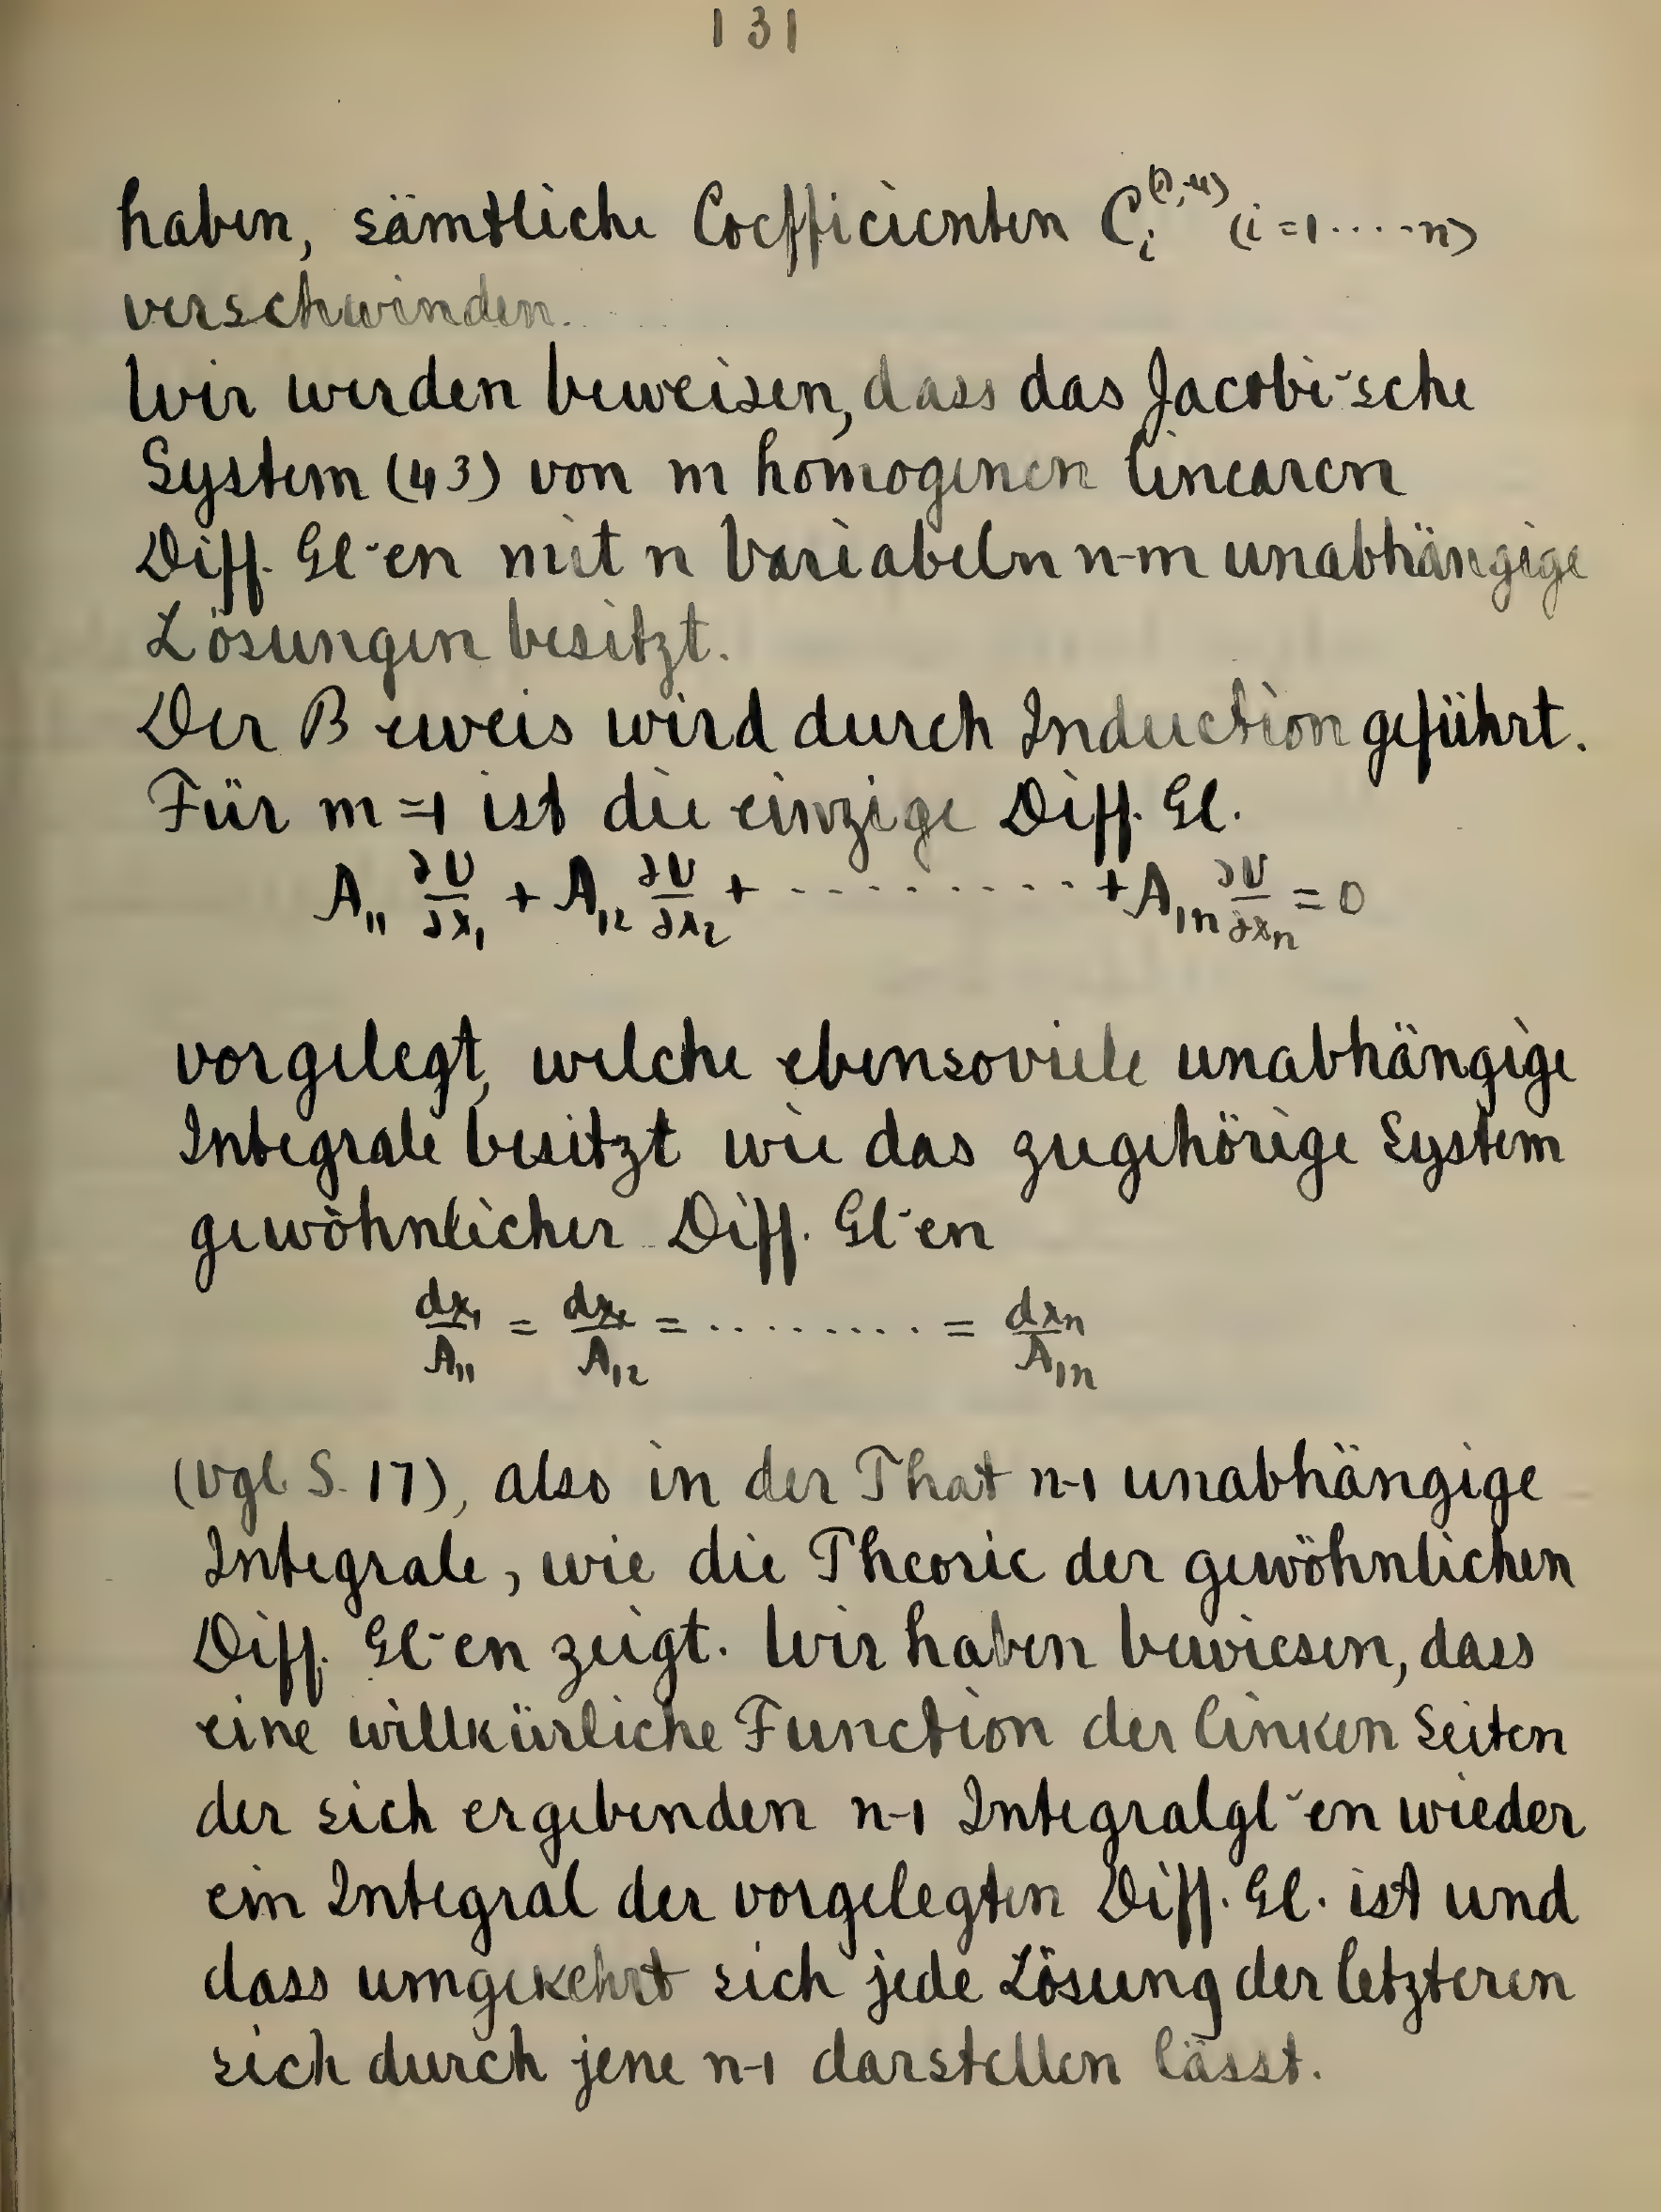 131
haben, sämtliche Coefficienten C_i^{(λ,μ)} (i=1·····n)
verschwinden.
Wir werden beweisen, dass das Jacobi-sche
System (43) von m homogenen linearen
Diff. Gl-en mit n Variabeln n-m unabhängige
Lösungen besitzt.
Der Beweis wird durch Induction geführt.
Für m=1 ist die einzige Diff. Gl.
A_{11} \frac{∂U}{∂x_1} + A_{12} \frac{∂U}{∂x_2} + ·········· + A_{1n} \frac{∂U}{∂x_n} = 0
vorgelegt, welche ebensoviele unabhängige
Integrale besitzt wie das zugehörige System
gewöhnlicher Diff. Gl-en
\frac{dx_1}{A_{11}} = \frac{dx_2}{A_{12}} = ········· = \frac{dx_n}{A_{1n}}
(vgl. S. 17), also in der That n-1 unabhängige
Integrale, wie die Theorie der gewöhnlichen
Diff. Gl-en zeigt. Wir haben bewiesen, dass
eine willkürliche Function der linken Seiten
der sich ergebenden n-1 Integralgl-en wieder
ein Integral der vorgelegten Diff. Gl. ist und
dass umgekehrt sich jede Lösung der letzteren
sich durch jene n-1 darstellen lässt.